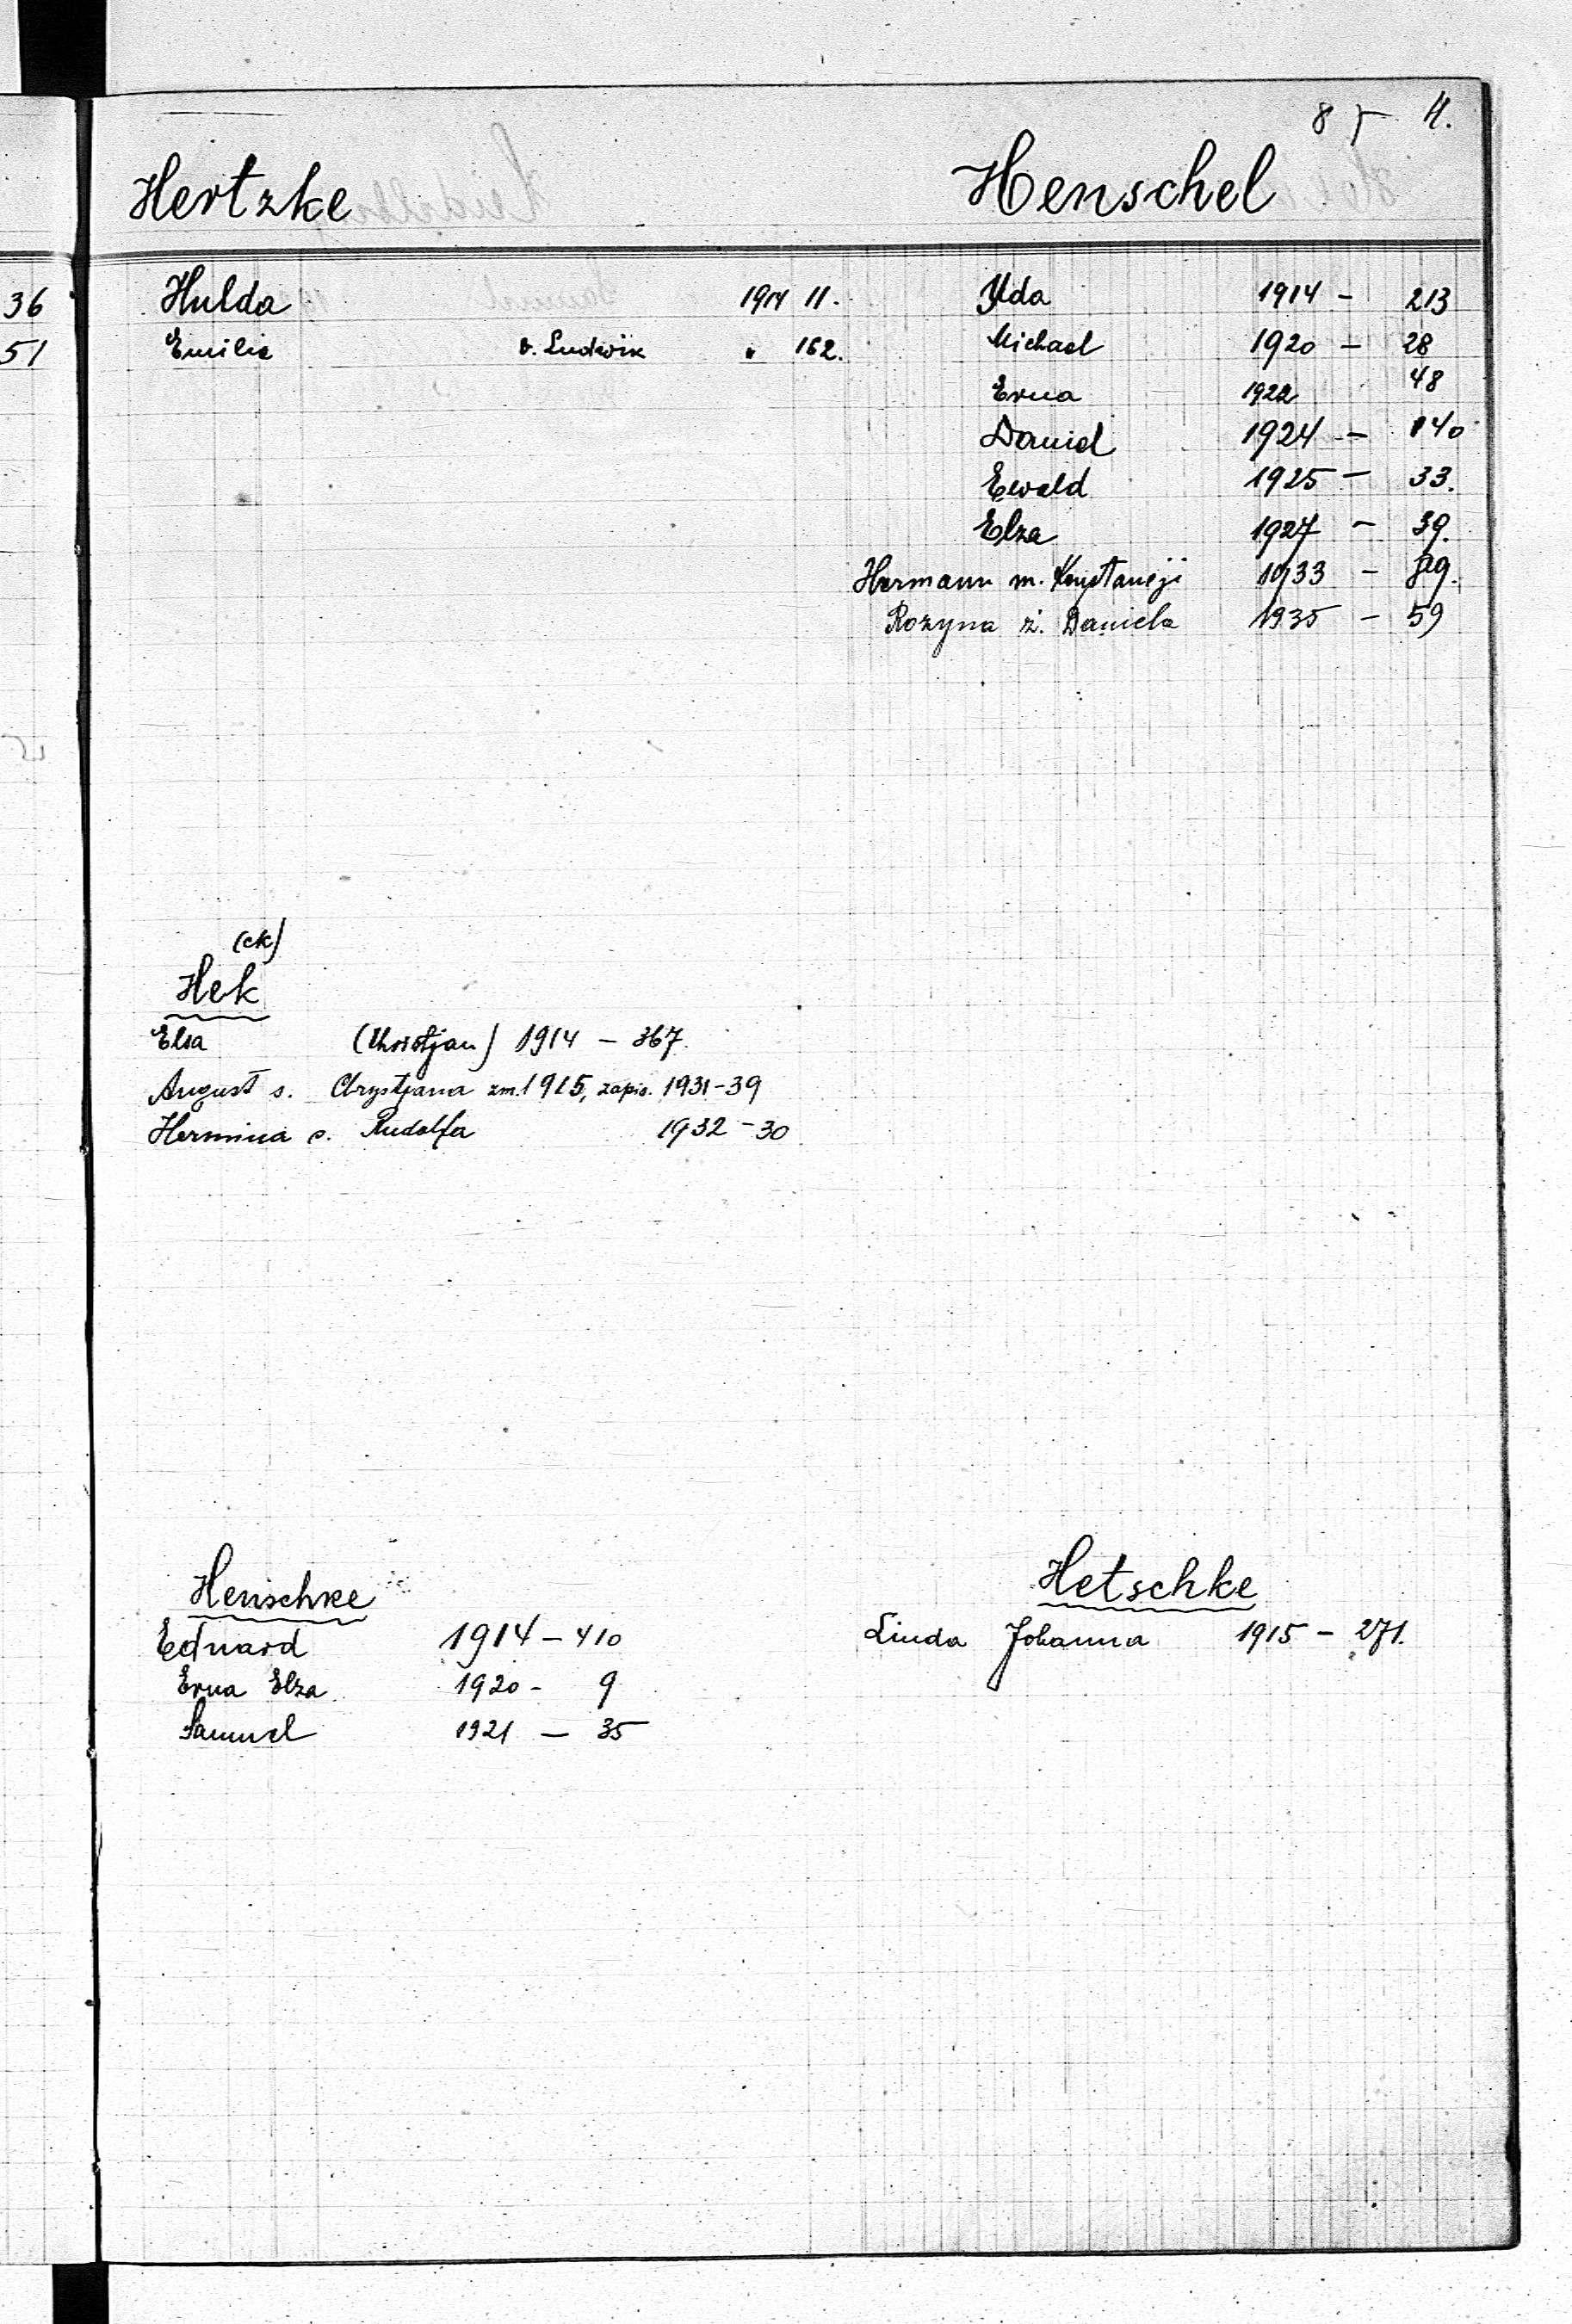 85 H.
Hertzke
Hulda 1914 11.
Emilie v. Ludwik " 162.
Henschel
Ida 1914 - 213
Michael 1920 - 28
Erna 1922 48
Daniel 1924 - 140
Ewald 1925 - 33.
Elza 1927 - 39.
Hermann m. Konstancji 1933 - 29.
Rozyna ż. Daniela 1935 - 59
36
51
(ck)
Hek
Elsa (Christjan) 1914 - 367.
August s. Chrystjana zm. 1915, zapis. 1931-39
Hermina c. Rudolfa 1932-30
Henschke
Eduard 1914 - 410
Erna Elza 1920 - 9
Samuel 1921 - 35
Hetschke
Linda Johanna 1915 - 271.